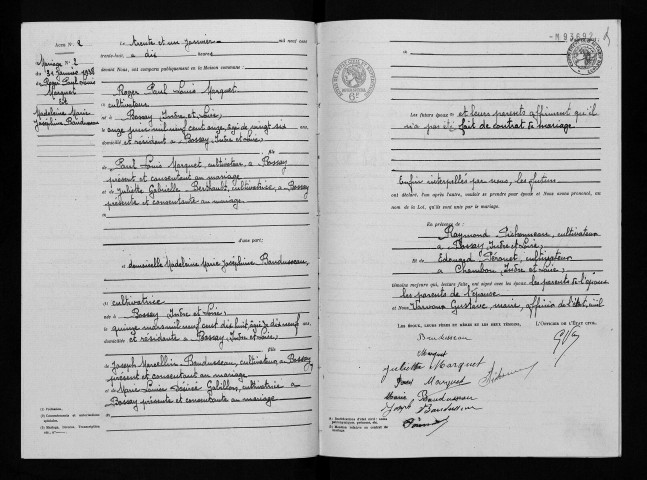 Acte N° 2
Mariage N° 2
du 31 Janvier 1938
de Roger Paul Louis
Marquet
Et
Madeleine Marie
Joséphine Baudusseau
Le trente et un janvier mil neuf cent
trente-huit, à dix heures
devant Nous, ont comparu publiquement en la Maison commune :
Roger Paul Louis Marquet
cultivateur
né à Bossay, Indre et Loire,
le onze juin mil neuf cent onze, âgé de vingt six ans,
domicilié et résidant à Bossay, Indre et Loire,
fils
de Paul Louis Marquet, cultivateur, à Bossay
présent et consentant au mariage
et de Juliette Gabrielle Berthault, cultivatrice, à Bossay
présente et consentante au mariage
d'une part;
et demoiselle Madeleine Marie Joséphine Baudusseau,
cultivatrice
née à Bossay, Indre et Loire,
le quinze mars mil neuf cent dix huit, âgée de dix neuf ans,
domiciliée et résidante à Bossay, Indre et Loire,
fille
de Joseph Marcellin Baudusseau, cultivateur, à Bossay
présent et consentant au mariage
et de Marie Louise Désirée Galillon, cultivatrice à
Bossay présente et consentante au mariage
Les futurs époux et leurs parents affirment qu'il
n'a pas été fait de contrat de mariage.
Enfin interpellés par nous, les futurs
ont déclaré, l'un après l'autre, vouloir se prendre pour époux et Nous avons prononcé, au
nom de la Loi, qu'ils sont unis par le mariage.
En présence de :
Raymond cultivateur
à Bossay, Indre et Loire,
Et de Edouard Pérouet, cultivateur
à Chambon, Indre et Loire,
témoins majeurs qui, lecture faite, ont signé avec les époux, les parents de l'époux
les parents de l'épouse
et Nous Gustave, maire, officier de l'état civil
LES ÉPOUX, LEURS PÈRES ET MÈRES ET LES DEUX TÉMOINS, L'OFFICIER DE L'ÉTAT CIVIL,
Baudusseau
Marquet
Juliette Marquet
Marquet
Marie Baudusseau
Joseph Baudusseau